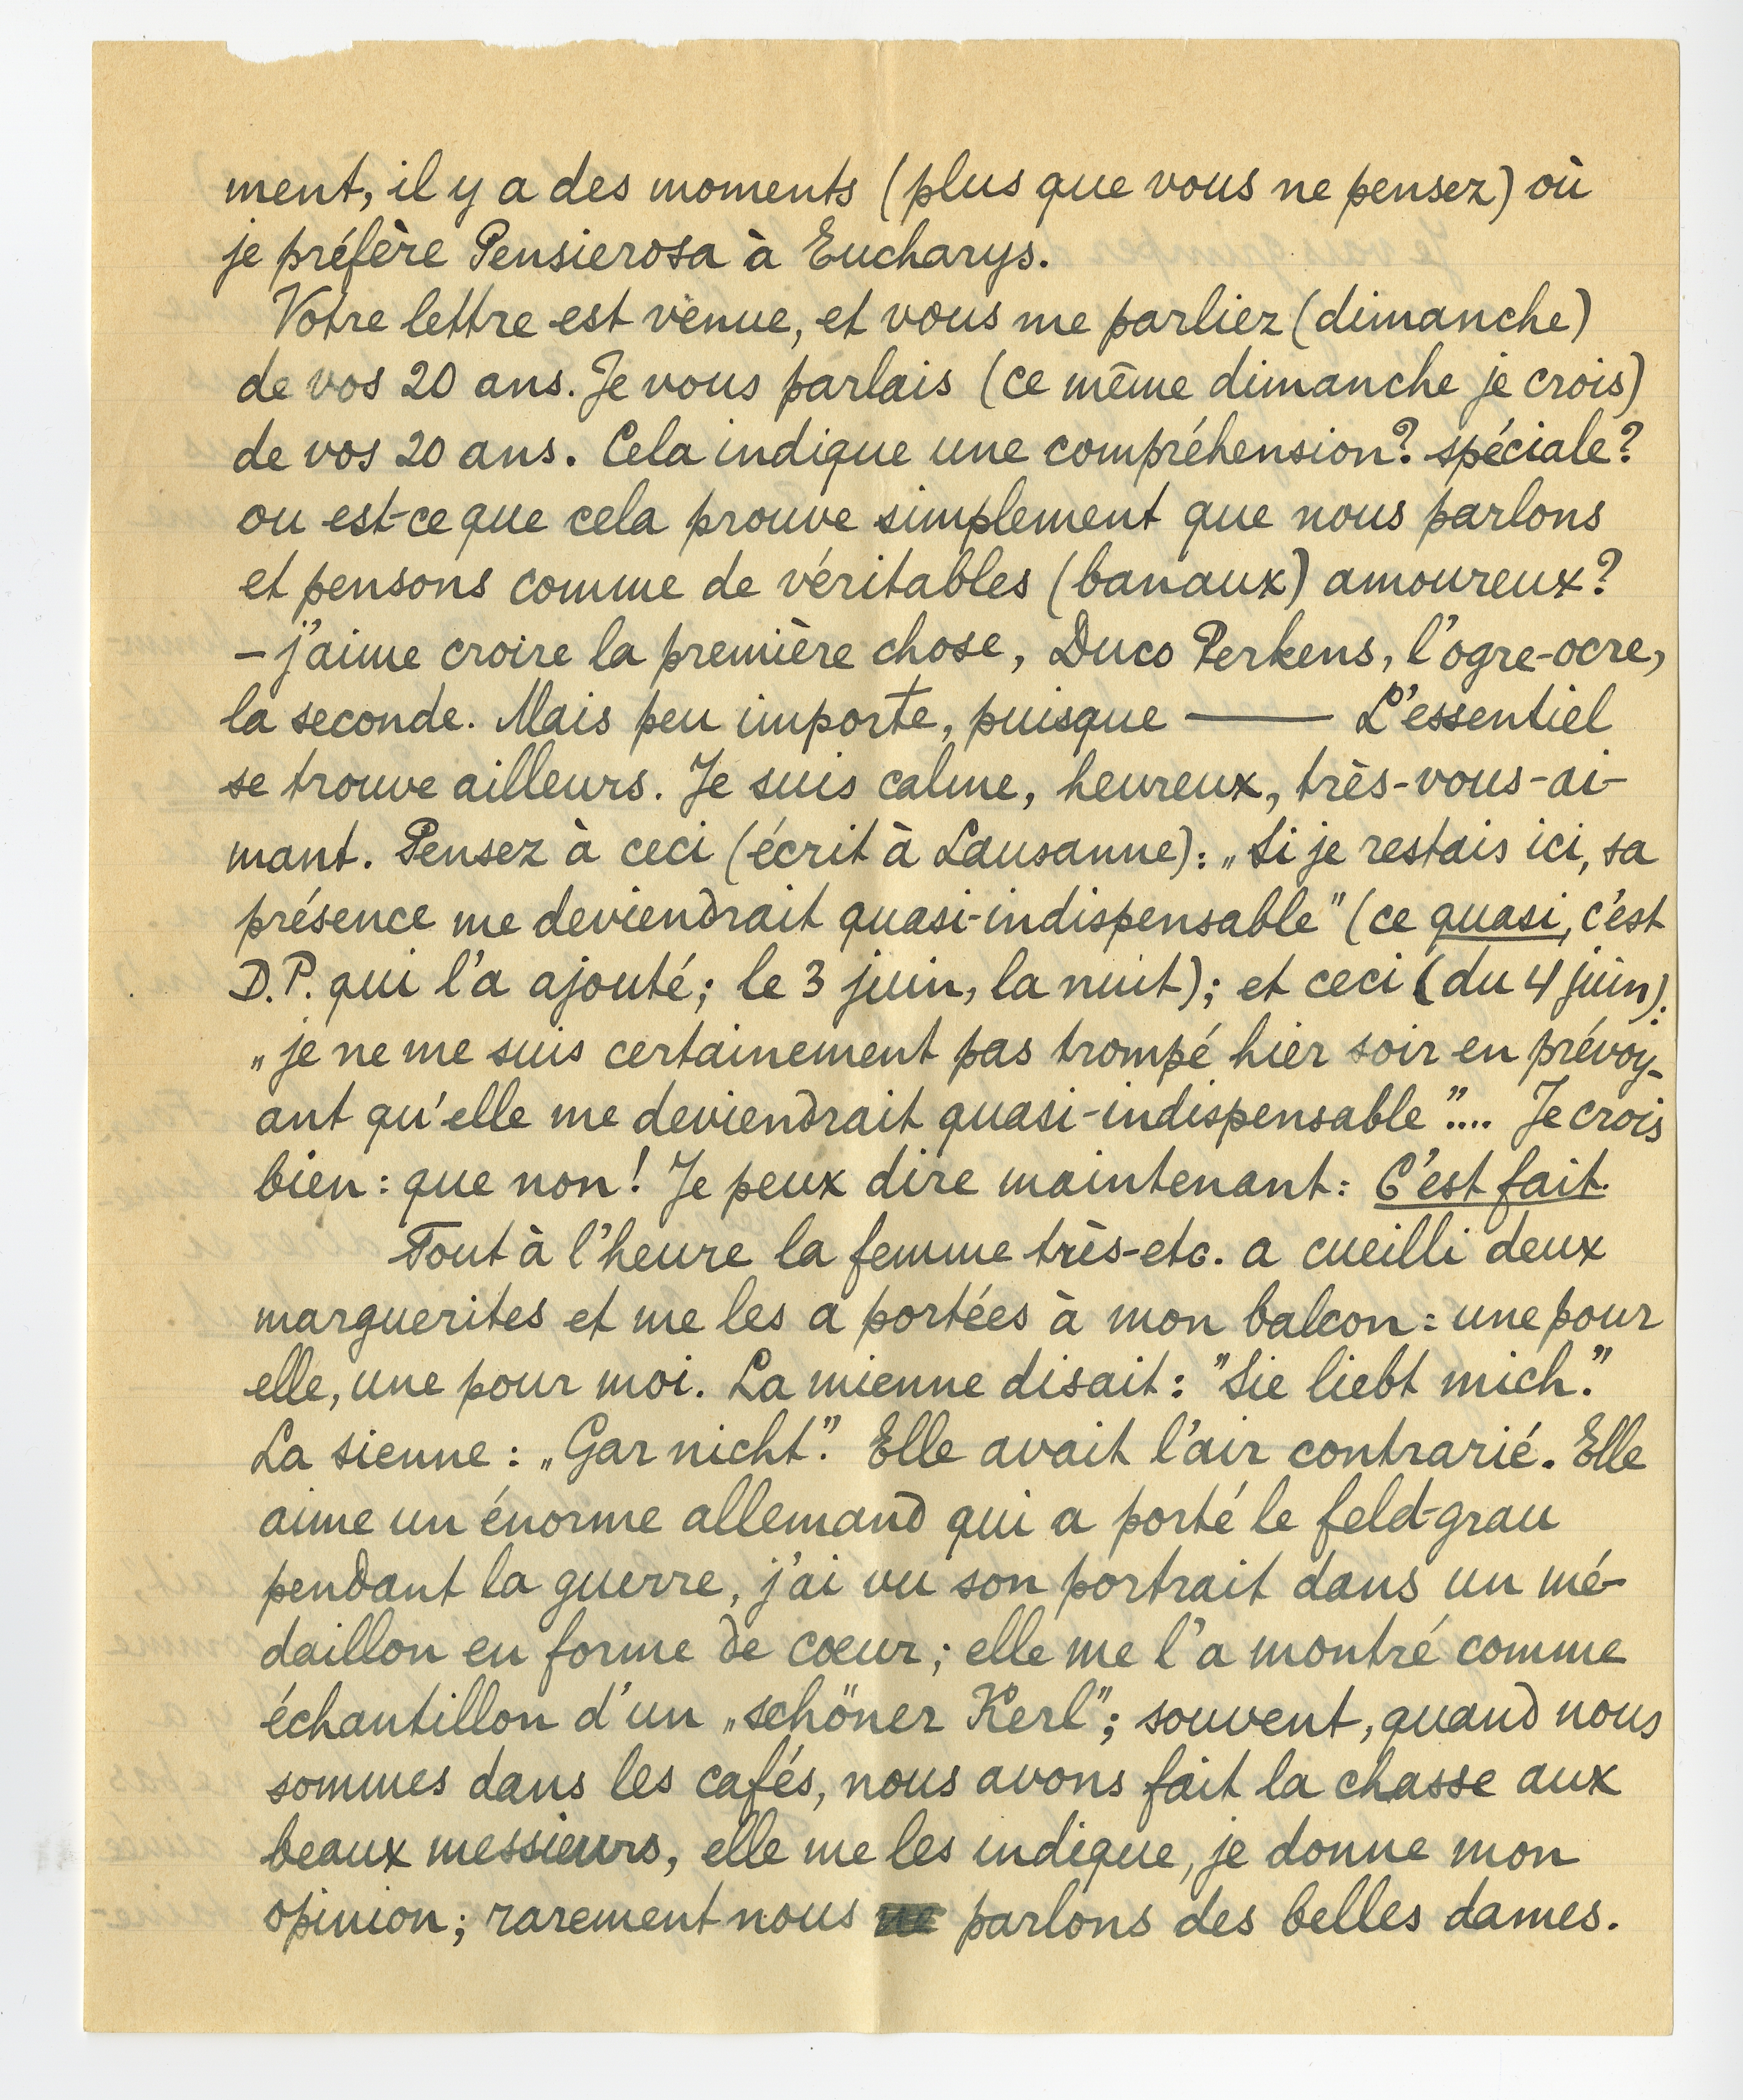 ment, il y a des moments (plus que vous ne pensez) où
je préfère Pensierosa à Eucharys.
Votre lettre est venue, et vous me parliez (dimanche)
de vos 20 ans. Je vous parlais (ce même dimanche je crois)
de vos 20 ans. Cela indique une compréhension? spéciale?
ou est-ce que cela prouve simplement que nous parlons
et pensons comme de véritables (banaux) amoureux?
– j'aime croire la première chose, Duco Perkens, l'ogre-ocre,
la seconde. Mais peu importe, puisque —— L'essentiel
se trouve ailleurs. Je suis calme, heureux, très-vous-ai-
mant. Pensez à ceci (écrit à Lausanne): „Si je restais ici, sa
présence me deviendrait quasi-indispensable" (ce quasi, c'est
D.P. qui l'a ajouté; le 3 juin, la nuit); et ceci (du 4 juin):
„je ne me suis certainement pas trompé hier soir en prévoy-
ant qu'elle me deviendrait quasi-indispensable".... Je crois
bien: que non! Je peux dire maintenant: C'est fait.
Tout à l'heure la femme très-etc. a cueilli deux
marguerites et me les a portées à mon balcon: une pour
elle, une pour moi. La mienne disait: "Sie liebt mich."
La sienne: „Gar nicht." Elle avait l'air contrarié. Elle
aime un énorme allemand qui a porté le feld-grau
pendant la guerre, j'ai vu son portrait dans un mé-
daillon en forme de coeur; elle me l'a montré comme
échantillon d'un „schöner Kerl"; souvent, quand nous
sommes dans les cafés, nous avons fait la chasse aux
beaux messieurs, elle me les indique, je donne mon
opinion; rarement nous parlons des belles dames.